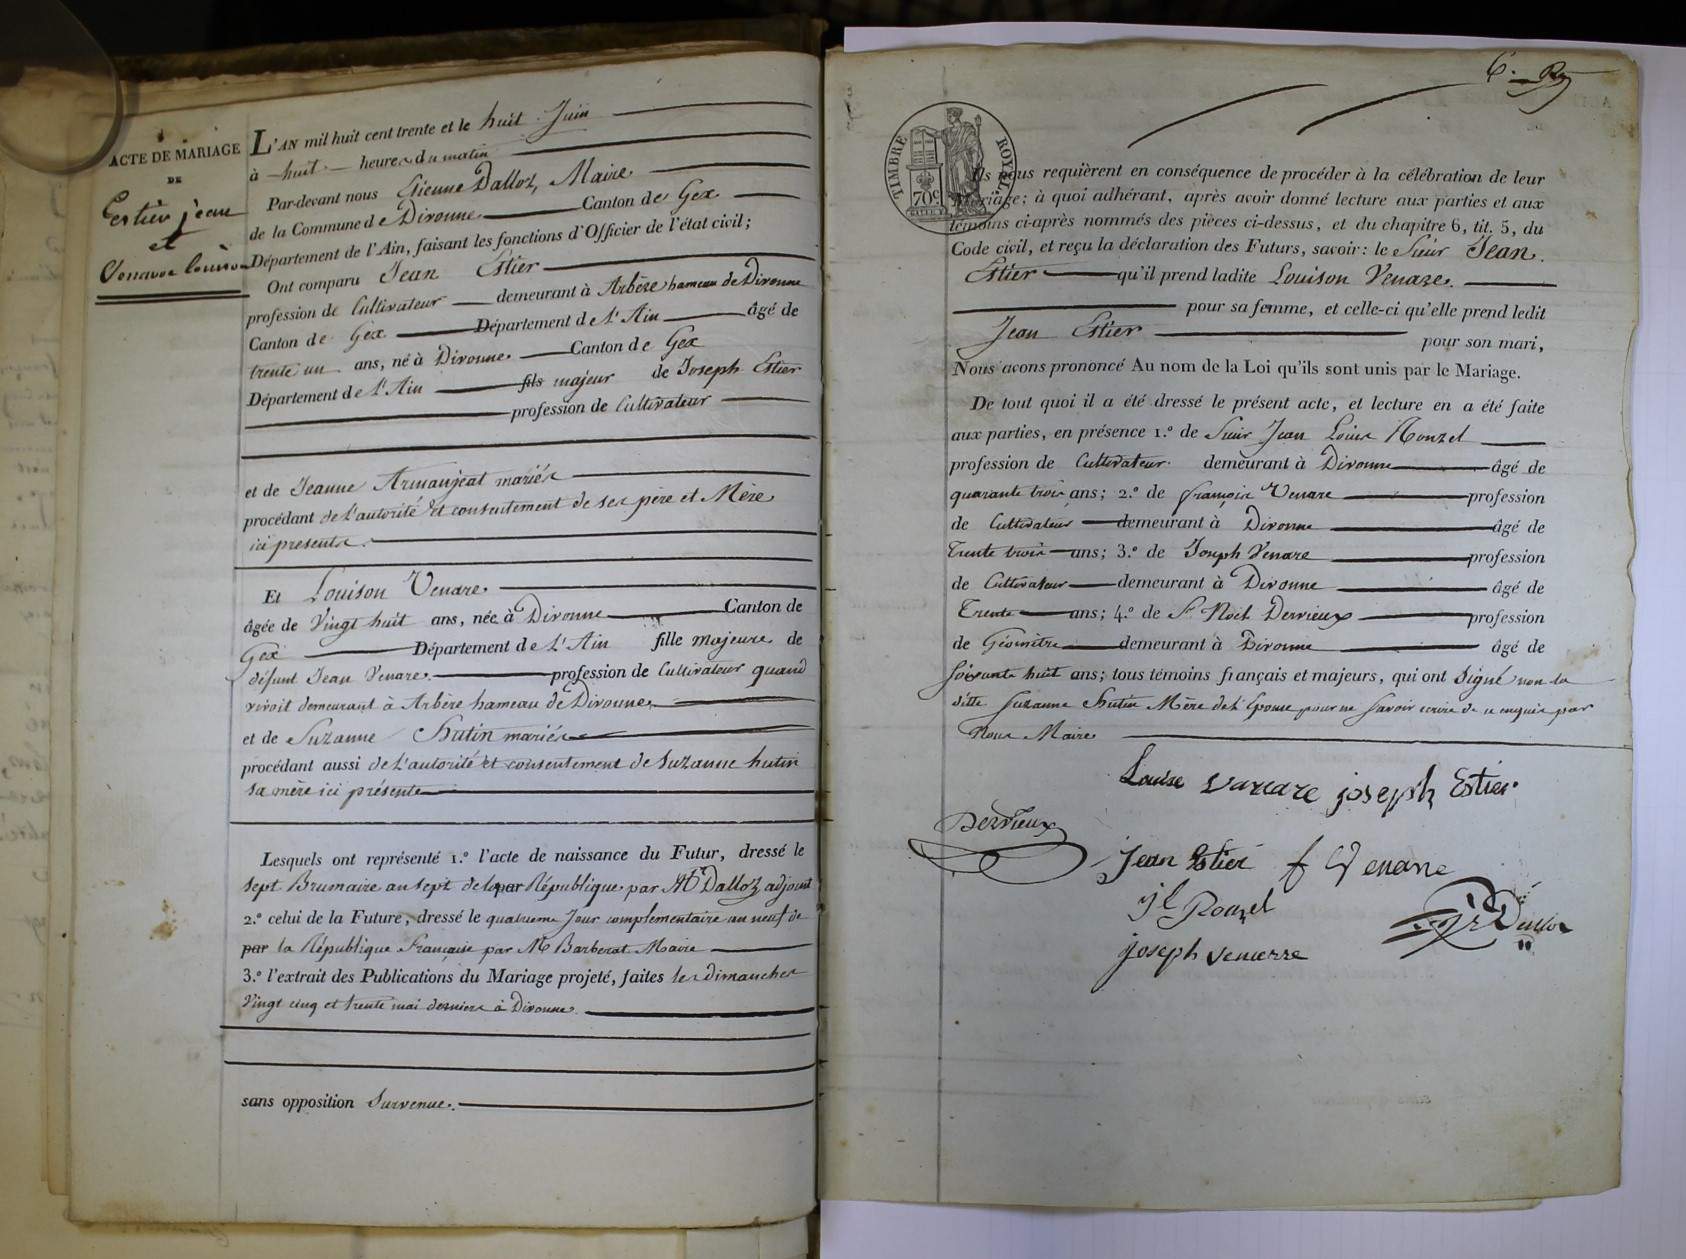 ACTE DE MARIAGE
DE
Estier jean
et
Venare louison
L'AN mil huit cent trente et le huit Juin
à huit heures du matin
Par-devant nous Etienne Dalloz, Maire
de la Commune de Divonne Canton de Gex
Département de l'Ain, faisant les fonctions d'Officier de l'état civil;
Ont comparu Jean Estier
profession de Cultivateur demeurant à Arbère hameau de Divonne
Canton de Gex Département de l'Ain âgé de
trente un ans, né à Divonne Canton de Gex
Département de l'Ain fils majeur de Joseph Estier
profession de Cultivateur
et de Jeanne Armanjeat mariés
procédant de l'autorité et consentement de ses père et Mère
ici présents.
Et Louison Venare.
âgée de Vingt huit ans, née à Divonne Canton de
Gex Département de l'Ain fille majeure de
défunt Jean Venare profession de Cultivateur quand
vivoit demeurant à Arbère hameau de Divonne,
et de Suzanne Hutin mariés
procédant aussi de l'autorité et consentement de Suzanne hutin
sa mère ici présente
Lesquels ont représenté 1.º l'acte de naissance du Futur, dressé le
sept Brumaire an sept de la par République par M Dalloz adjoint
2.º celui de la Future, dressé le quatrieme Jour complémentaire an neuf de
par la République Française par M Barberat Maire
3.º l'extrait des Publications du Mariage projeté, faites les dimanches
Vingt cinq et trente mai derniers à Divonne.
sans opposition Survenue.
6.
TIMBRE ROYAL
70c
Ils nous requièrent en conséquence de procéder à la célébration de leur
Mariage; à quoi adhérant, après avoir donné lecture aux parties et aux
témoins ci-après nommés des pièces ci-dessus, et du chapitre 6, tit. 5, du
Code civil, et reçu la déclaration des Futurs, savoir: le Sieur Jean
Estier qu'il prend ladite Louison Venare.
pour sa femme, et celle-ci qu'elle prend ledit
Jean Estier pour son mari,
Nous avons prononcé Au nom de la Loi qu'ils sont unis par le Mariage.
De tout quoi il a été dressé le présent acte, et lecture en a été faite
aux parties, en présence 1.º de Sieur Jean Louis Rouzel
profession de Cultivateur demeurant à Divonne âgé de
quarante trois ans; 2.º de françois Venare profession
de Cultivateur demeurant à Divonne âgé de
Trente trois ans; 3.º de Joseph Venare profession
de Cultivateur demeurant à Divonne âgé de
Trente ans; 4.º de Sr Noël Dervieux profession
de Géomètre demeurant à Divonne âgé de
Soixante huit ans; tous témoins français et majeurs, qui ont Signé non la
ditte Suzanne Hutin Mère de l'Epouse pour ne Savoir ecrire de ce enquis par
Nous Maire
Louise varcare joseph Estier
Dervieux
Jean Estier f Venare
jl Rouzel
joseph venerre